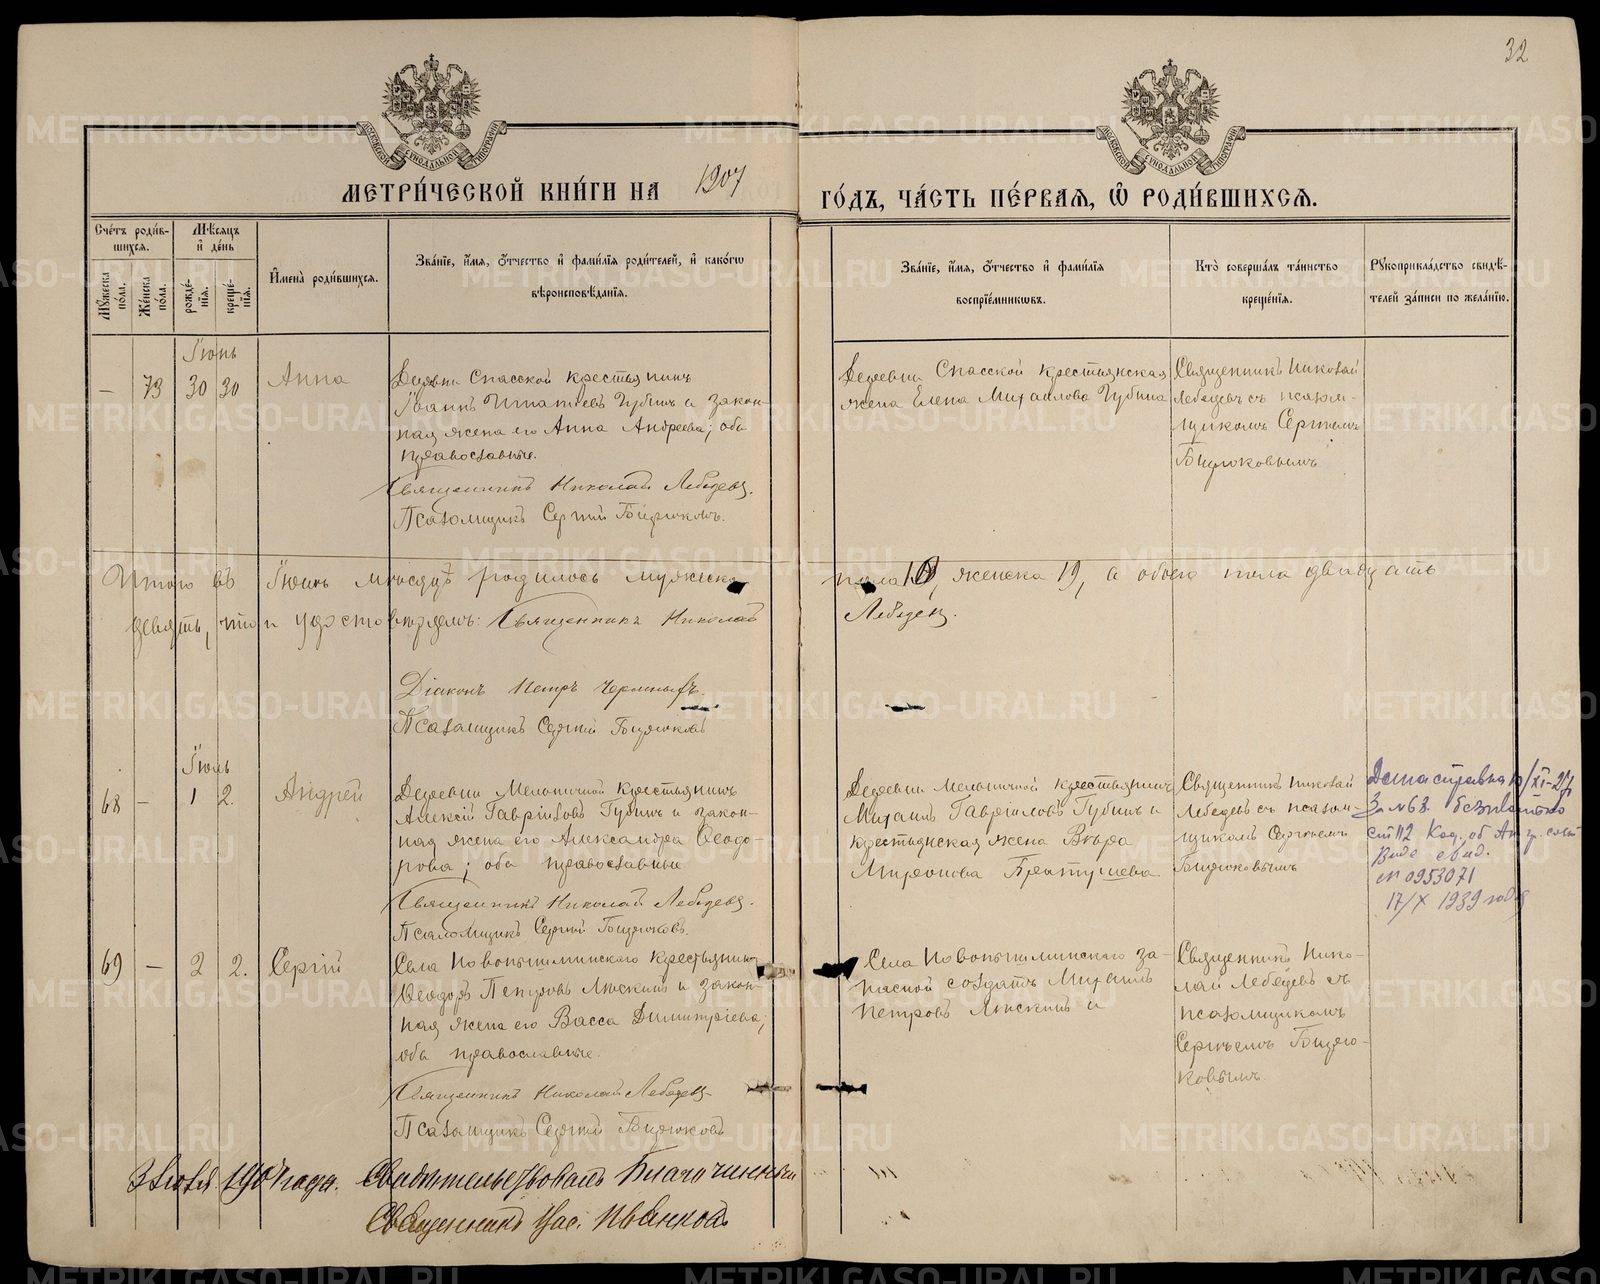 32
МОСКОВСКОЙ СѴНОДАЛЬНОЙ ТИПОГРАФІИ
МОСКОВСКОЙ СѴНОДАЛЬНОЙ ТИПОГРАФІИ
МЕТРИ́ЧЕСКОЙ КНИ́ГИ НА 1907 ГО́ДЪ, ЧА́СТЬ ПЕ́РВАЯ, Ѡ҆ РОДИ́ВШИХСЯ.
Сче́тъ роди́в-
шихся.
Мꙋ́жеска по́ла.
Же́нска по́ла.
Мѣ́сяцъ и҆ де́нь
рожде́-нїя.
креще́-нїя.
И҆мена̀ роди́вшихся.
Зва́нїе, и҆́мя, ѻ҆́тчество и҆ фами́лїя роди́телей, и҆ како́гѡ
вѣроисповѣ́данїя.
Зва́нїе, и҆́мя, ѻ҆́тчество и҆ фами́лїя
воспрїе́мникѡвъ.
Кто̀ соверша́лъ та́инство
креще́нїя.
Рꙋкоприкла́дство свидѣ́-
телей за́писи по жела́нїю.
Іюнь
— 73 30 30 Анна
Деревни Спасской крестьянинъ
Іоаннъ Игнатіевъ Губинъ и закон-
ная жена его Анна Андреева; оба
православные.
Священникъ Николай Лебедевъ.
Псаломщикъ Сергій Бирюковъ.
Деревни Спасской крестьянская
жена Елена Михаилова Губина
Священникъ Николай
Лебедевъ съ псалом-
щикомъ Сергіемъ
Бирюковымъ
Итого въ Іюнь месяцѣ родилось мужска пола 10, женска 19, а обоего пола двадцать
девять, что и удостовѣряемъ: Священникъ Николай Лебедевъ.
Діаконъ Петръ
Псаломщикъ Сергій Бирюковъ
Іюль
68 — 1 2. Андрей
Деревни Мельничной крестьянинъ
Алексій Гавріиловъ Губинъ и закон-
ная жена его Александра Ѳеодо-
рова; оба православные
Священникъ Николай Лебедевъ.
Псаломщикъ Сергій Бирюковъ.
Деревни Мельничной крестьянинъ
Михаилъ Гавріиловъ Губинъ и
крестьянская жена Вѣра
Миронова
Священникъ Николай
Лебедевъ съ псалом-
щикомъ Сергіемъ
Бирюковымъ
справка
З. №68.
ст 112 Код. об
свид.
№ 0953071
17/X 1939 года
69 — 2 2. Сергій
Села Новопышминскаго крестьянинъ
Ѳеодоръ Петровъ и закон-
ная жена его Васса Димитріева;
оба православные.
Священникъ Николай Лебедевъ
Псаломщикъ Сергій Бирюковъ
Села Новопышминскаго за-
пасной солдатъ Михаилъ
Петровъ и
Священникъ Нико-
лай Лебедевъ съ
псаломщикомъ
Сергіемъ Бирю-
ковымъ.
3 Іюля 1907 года. Свидѣтельствовалъ Благочинный
Священникъ
METRIKI.GASO-URAL.RU